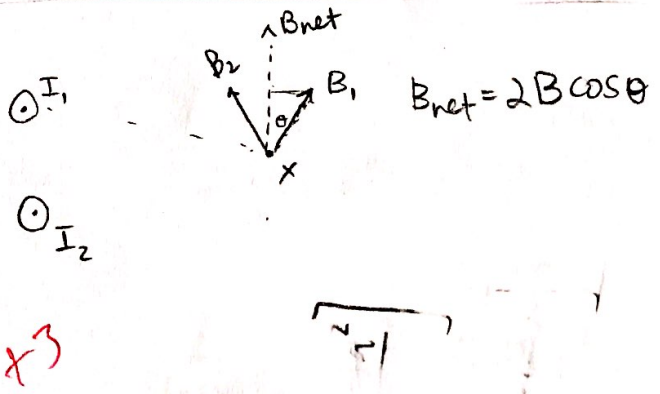 Bnet
B₂
B₁
I₁
θ
Bnet = 2B cosθ
x
I₂
+3